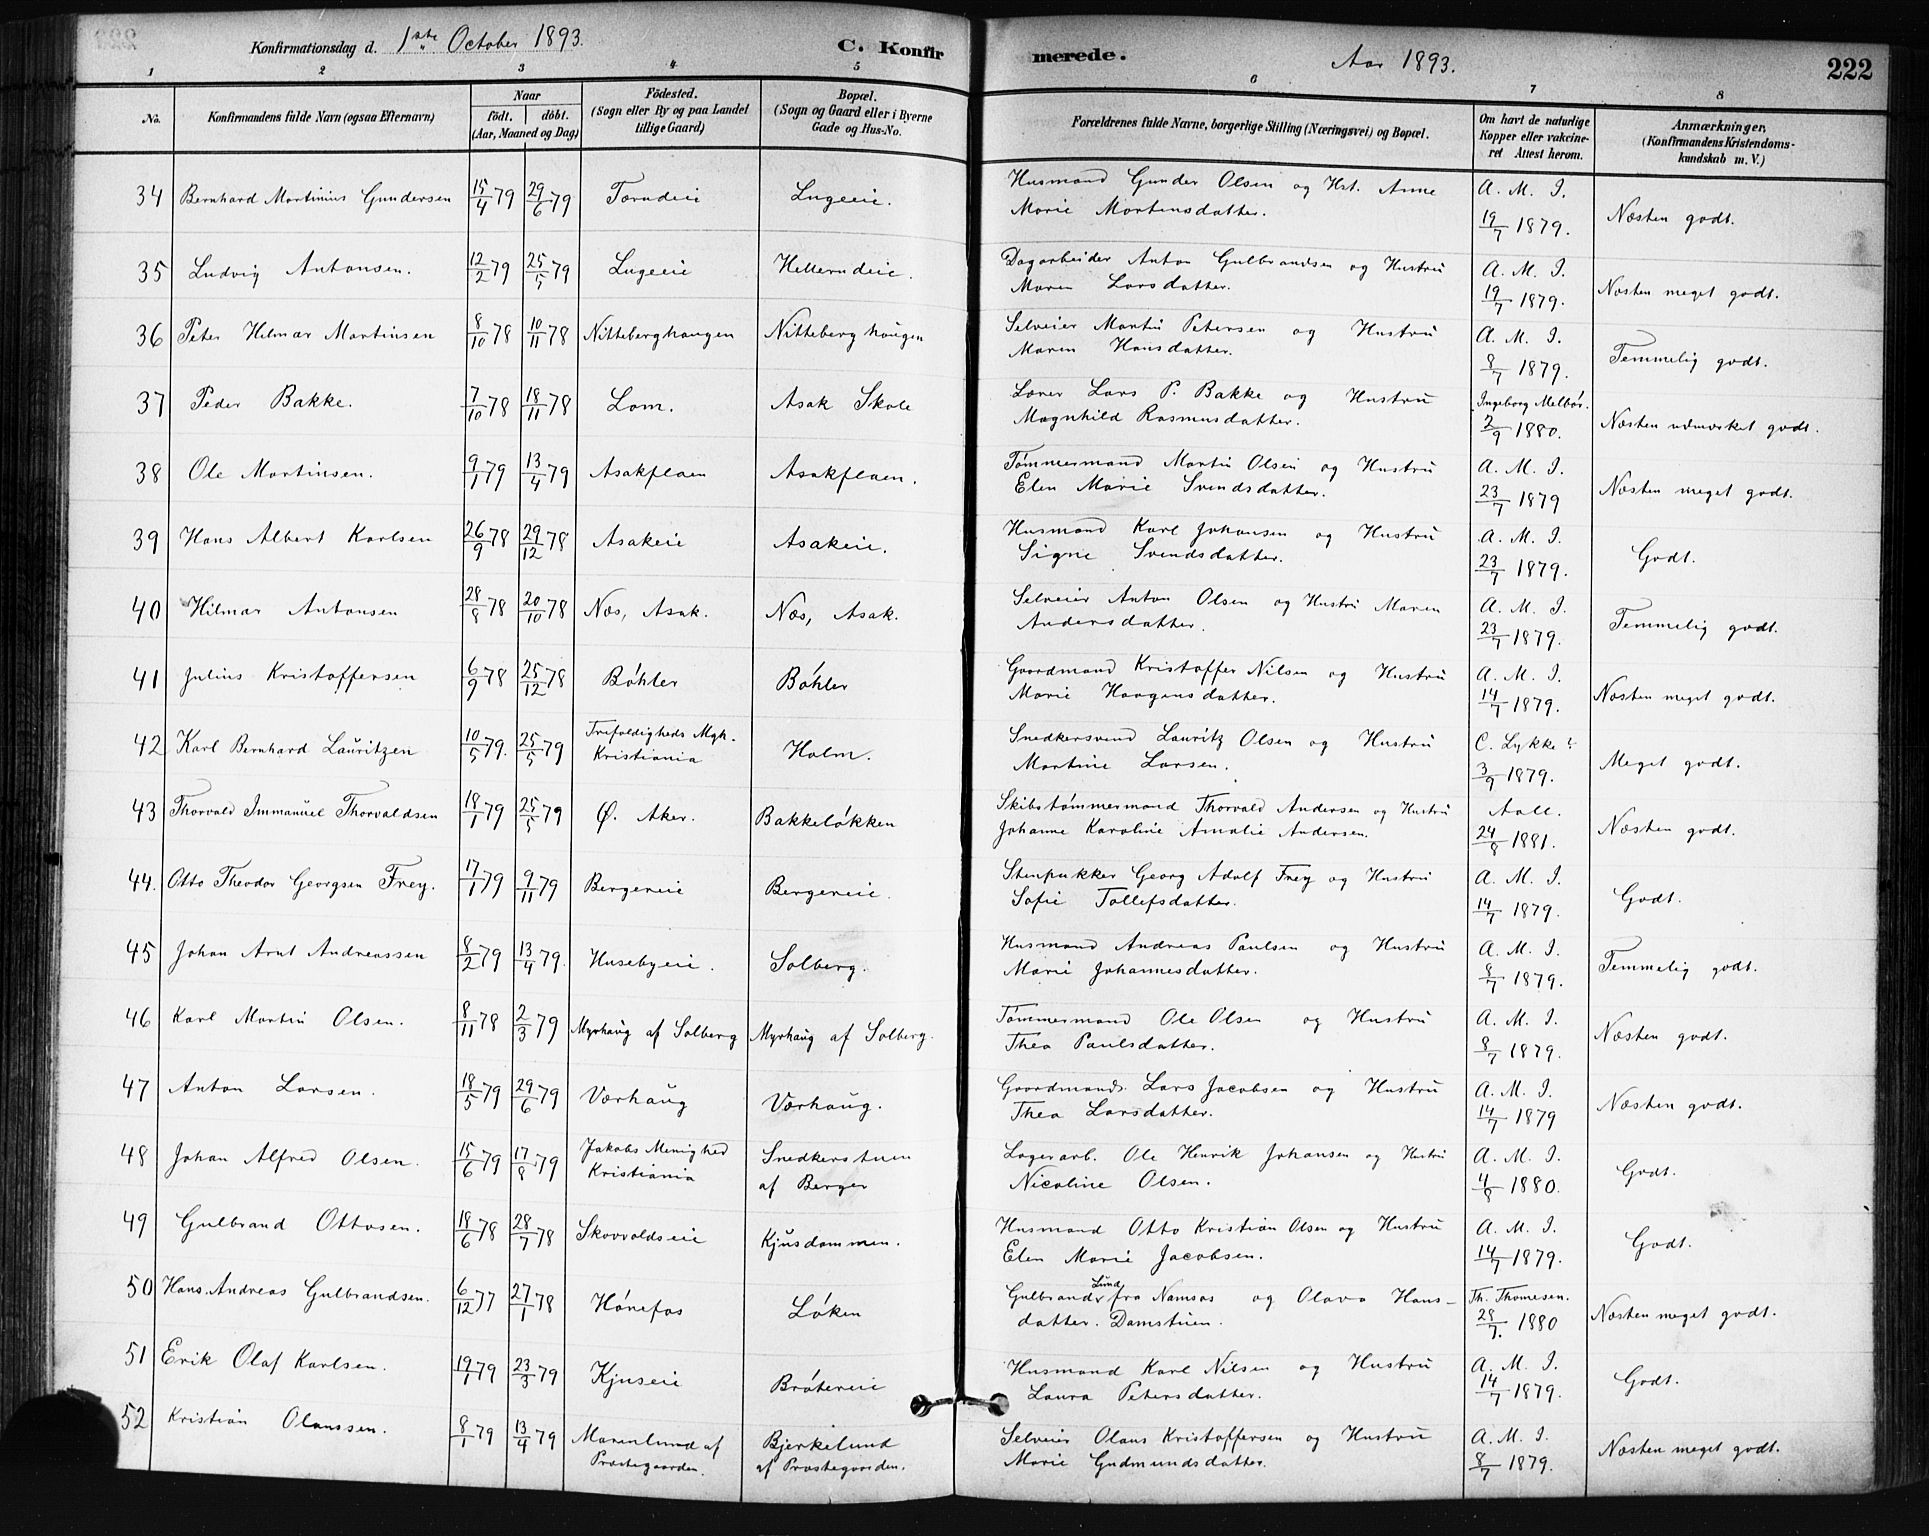 Konfirmationsdag d. 1ste October 1893.
C. Konfirmerede.
Aar 1893.
222
1 2 3 4 5 6 7 8
No.
Konfirmandens fulde Navn (ogsaa Efternavn)
Naar
födt. döbt.
(Aar, Maaned og Dag)
Födested.
(Sogn eller By og paa Landet
tillige Gaard)
Bopæl.
(Sogn og Gaard eller i Byerne
Gade og Hus-No.
Forældrenes fulde Navne, borgerlige Stilling (Næringsvei) og Bopæl.
Om havt de naturlige
Kopper eller vakcine-
ret Attest herom.
Anmærkninger,
(Konfirmandens Kristendoms-
kundskab m. V.)
34 Bernhard Martinius Gundersen 15/4 79 29/6 79 Lugeeie. Husmand Gunder Olsen og Hst. Anne A. M. I.
Marie Mortensdatter. 19/7 1879. Næsten godt.
35 Ludvig Antonsen. 12/2 79 25/5 79 Lugeeie Hellerudeie. Dagarbeider Anton Gulbrandsen og Hustru A. M. I.
Maren Larsdatter. 19/7 1879. Næsten meget godt.
36 Peter Hilmar Martinsen 8/10 78 10/11 78 Nitteberghaugen Nitteberghaugen Selveier Martin Petersen og Hustru A. M. I.
Maren Hansdatter. 8/7 1879. Temmelig godt.
37 Peder Bakke. 7/10 78 18/11 78 Lom. Asak Skole Lærer Lars P. Bakke og Hustru Ingeborg Melbös.
Magnhild Rasmusdatter. 2/9 1880. Næsten udmærket godt.
38 Ole Martinsen. 9/1 79 13/4 79 Asakflaen Asakflaen. Tømmermand Martin Olsen og Hustru A. M. I.
Elen Marie Svendsdatter. 23/7 1879 Næsten meget godt.
39 Hans Albert Karlsen 26/9 78 29/12 78 Asakeie Asakeie. Husmand Karl Johansen og Hustru A. M. I.
Signe Svendsdatter. 23/7 1879. Godt.
40 Hilmar Antonsen 28/8 78 20/10 78 Næs, Asak. Næs, Asak. Selveier Anton Olsen og Hustru Maren A. M. I.
Andersdatter. 23/7 1879. Temmelig godt.
41 Julius Kristoffersen 6/9 78 25/12 78 Bøhler Bøhler Gaardmand Kristoffer Nilsen og Hustru A. M. I.
Marie Haagensdatter. 14/7 1879. Næsten meget godt.
42 Karl Bernhard Lauritzen 10/5 79. 25/5 79 Trefoldigheds Mgh. Kristiania Holm. Snedkersvend Lauritz Olsen og Hustru C. Lykke
Martine Larsen. 3/9 1879. Meget godt.
43 Thorvald Immanuel Thorvaldsen 18/1 79 25/5 79 Ø. Aker. Bakkeløkken Skibstømmermand Thorvald Andersen og Hustru Aall.
Johanne Karoline Amalie Andersen. 24/8 1881. Næsten godt.
44. Otto Theodor Georgsen Frey. 17/1 79 9/11 79 Bergereie Bergereie. Stenpukker Georg Adolf Frey og Hustru A. M. I.
Sofie Tollefsdatter. 14/7 1879. Godt.
45 Johan Arnt Andreassen 8/2 79 13/4 79. Husebyeie. Solberg. Husmand Andreas Paulsen og Hustru A. M. I.
Marie Johannesdatter. 8/7 1879. Temmelig godt.
46 Karl Martin Olsen. 8/11 78 2/3 79 Myrhaug af Solberg Myrhaug af Solberg. Tømmermand Ole Olsen og Hustru A. M. I.
Thea Paulsdatter. 8/7 1879. Næsten godt.
47 Anton Larsen. 18/5 79 29/6 79 Værhaug Værhaug. Gaardmand Lars Jacobsen og Hustru A. M. I.
Thea Larsdatter. 14/7 1879 Næsten godt.
48 Johan Alfred Olsen. 15/6 79 17/8 79 Jakobs Menighed Kristiania Snedkerstuen af Berger Lagerarb. Ole Henrik Johansen og Hustru A. M. I.
Nicoline Olsen. 4/8 1880. Godt.
49 Gulbrand Ottosen. 18/6 78 28/7 78 Skovvoldseie Kjusdammen. Husmand Otto Kristian Olsen og Hustru A. M. I.
Elen Marie Jacobsen. 14/7 1879. Godt.
50 Hans Andreas Gulbrandsen. 6/12 77 27/1 78 Hønefos Løken Gulbrand Lund fra Namsos og Olava Hans- Th. Thomesen.
datter. Damstuen. 28/7. 1880 Næsten meget godt.
51 Erik Olaf Karlsen. 19/1 79 23/3 79 Kjuseie Brøtereie Husmand Karl Nilsen og Hustru A. M. I.
Laura Petersdatter. 14/7 1879. Godt.
52 Kristian Olaussen. 8/1 79 13/4 79 Marenlund af Præstegaarden. Bjerkelund af Præstegaarden. Selveier Olaus Kristoffersen og Hustru A. M. I.
Marie Gudmundsdatter. 8/7 1879. Næsten meget godt.